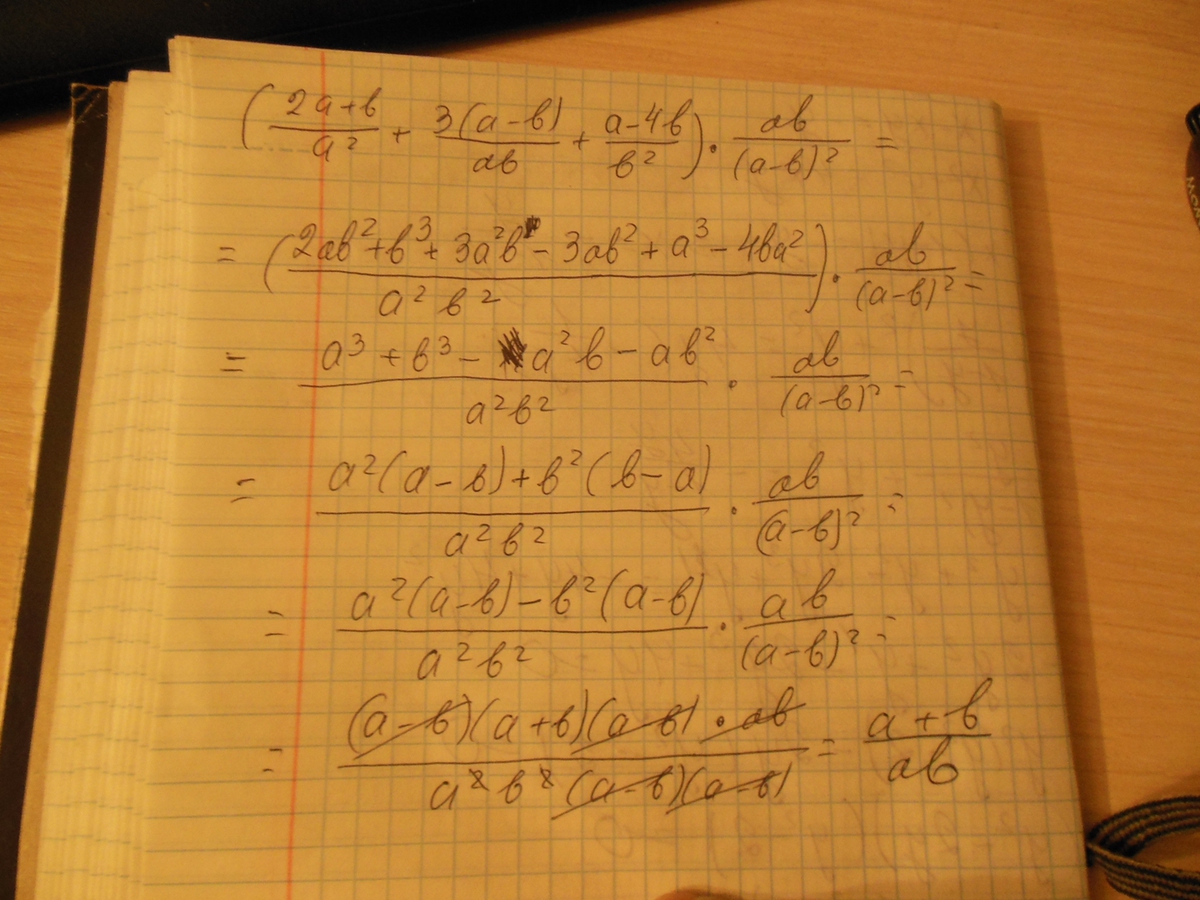 (2a+b/a² + 3(a-b)/ab + a-4b/b²) · ab/(a-b)² =
= (2ab²+b³+3a²b-3ab²+a³-4ba²/a²b²) · ab/(a-b)² =
= a³+b³-a²b-ab²/a²b² · ab/(a-b)² =
= a²(a-b)+b²(b-a)/a²b² · ab/(a-b)² =
= a²(a-b)-b²(a-b)/a²b² · ab/(a-b)² =
= (a-b)(a+b)(a-b)·ab/a²b²(a-b)(a-b) = a+b/ab